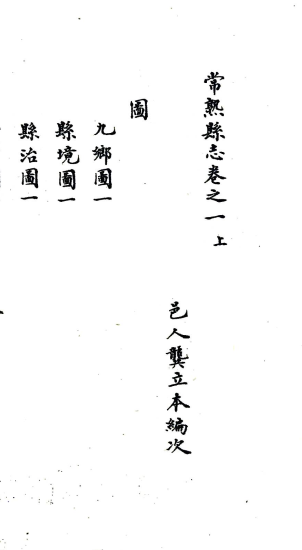 常熟縣志卷之一上
邑人龔立本編次
圖
九鄉圖一
縣境圖一
縣治圖一